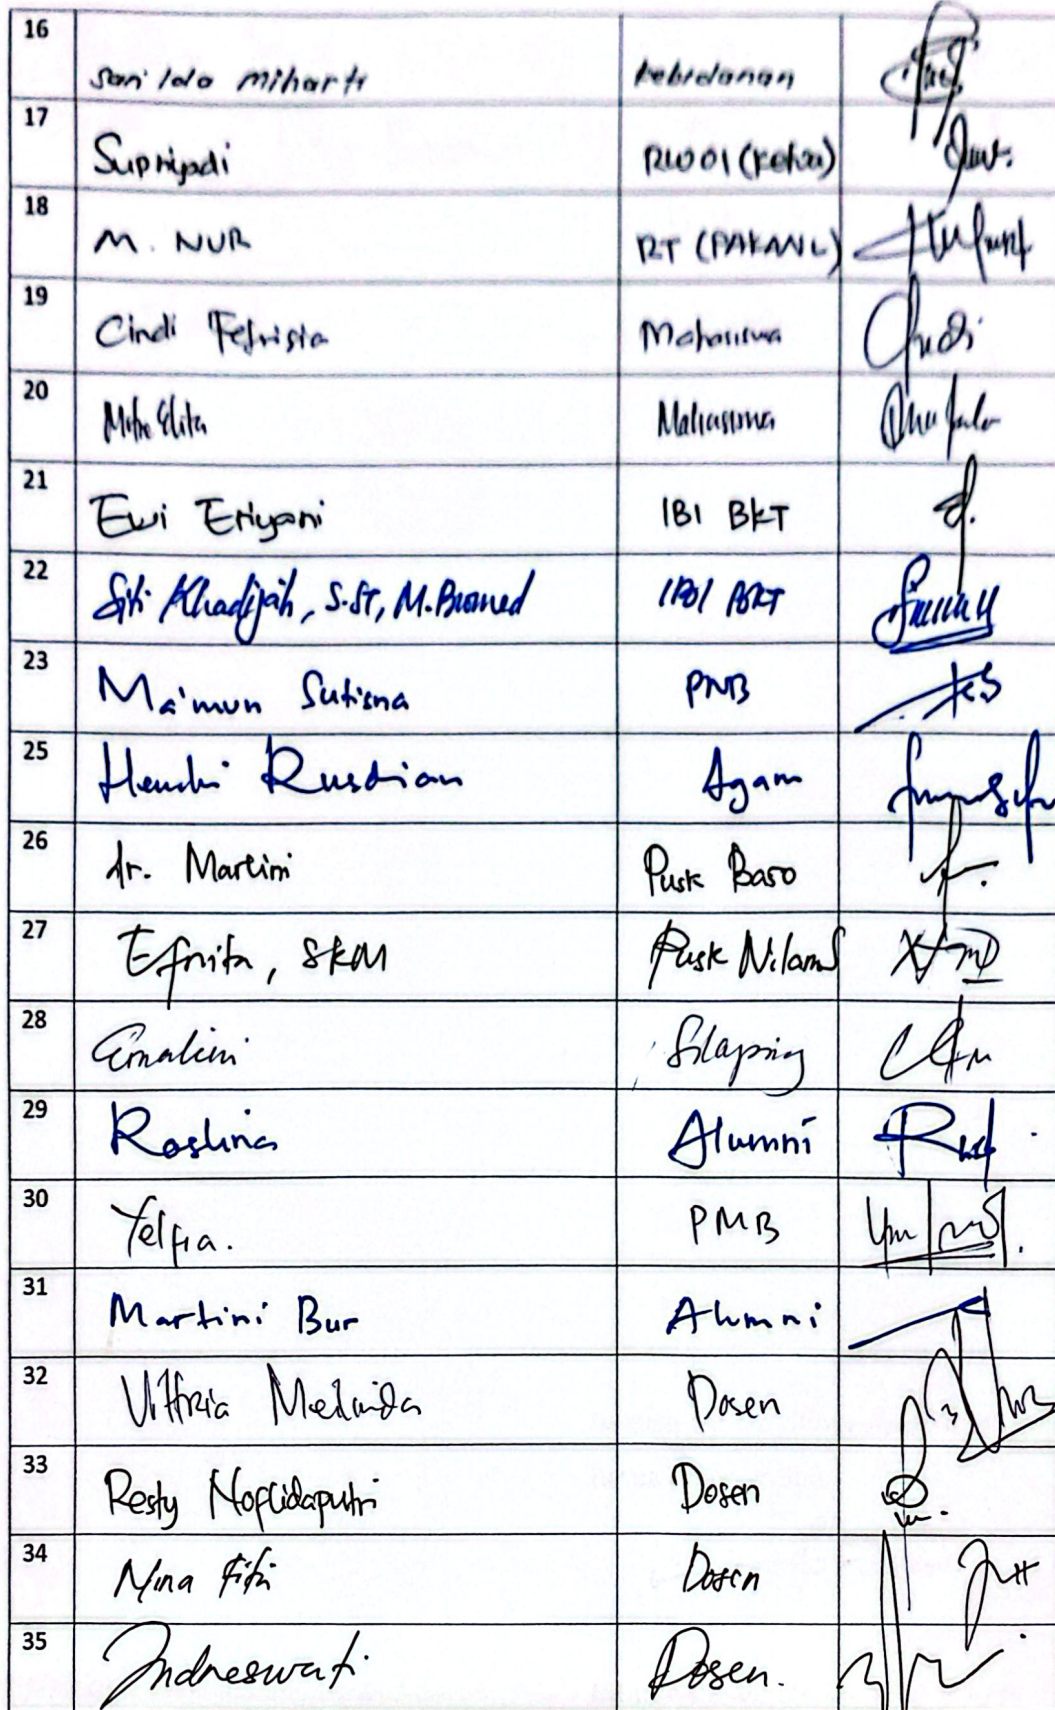 16 Sari Ida Miharti Kebidanan
17 Supriyadi RW 01 (Ketua)
18 M. NUR RT (PAKANL)
19 Cindi Fefrisia Mahasiswa
20 Mitra Elita Mahasiswa
21 Ewi Eriyani IBI BKT
22 Siti Khadijah, S.ST, M.Biomed IBI BKT
23 Ma'mun Sutisna PNB
25 Hendri Rusdian Agam
26 dr. Martini Pusk Baso
27 Efnita, SKM Pusk Nilam S
28 Ernalini Silaping
29 Roslina Alumni
30 Yelfia. PMB
31 Martini Bur Alumni
32 Vittria Meilinda Dosen
33 Resty Noflidaputri Dosen
34 Nina Fitri Dosen
35 Indreswati Dosen.